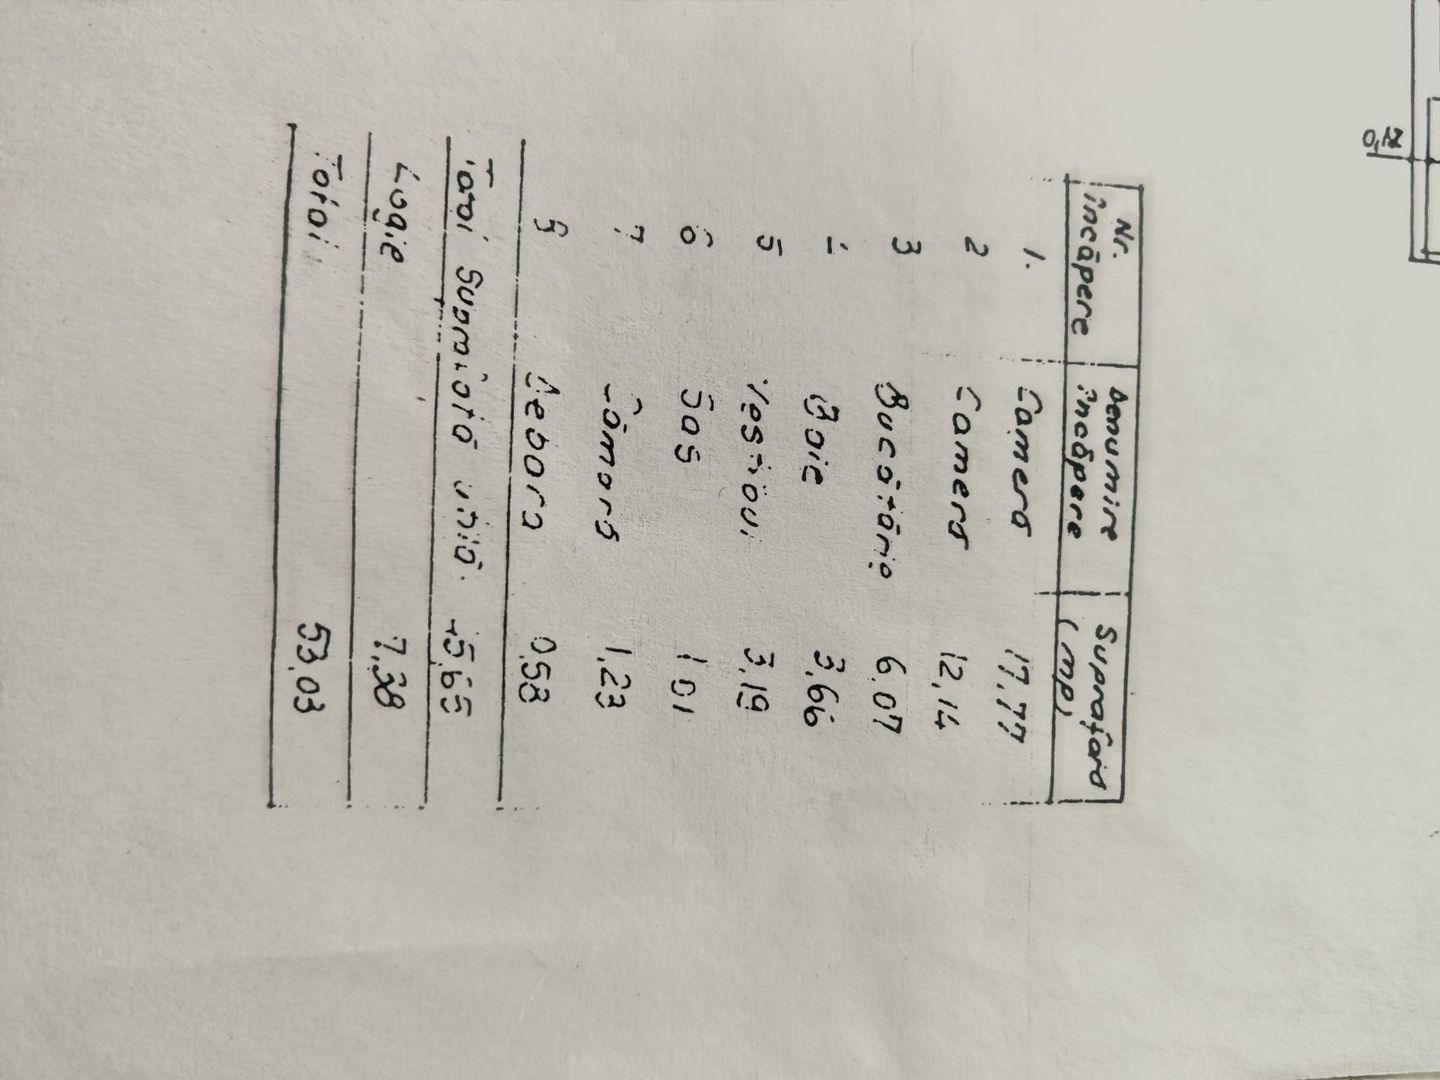 Nr. încăpere Denumire încăpere Suprafața (mp)
1. Camera 17,77
2 Camera 12,14
3 Bucătărie 6,07
4 Baie 3,66
5 Vestibul 3,19
6 Sas 1,01
7 Cămară 1,23
8 Debara 0,58
Total Suprafață utilă 45,65
Logie 7,38
Total 53,03
0,12